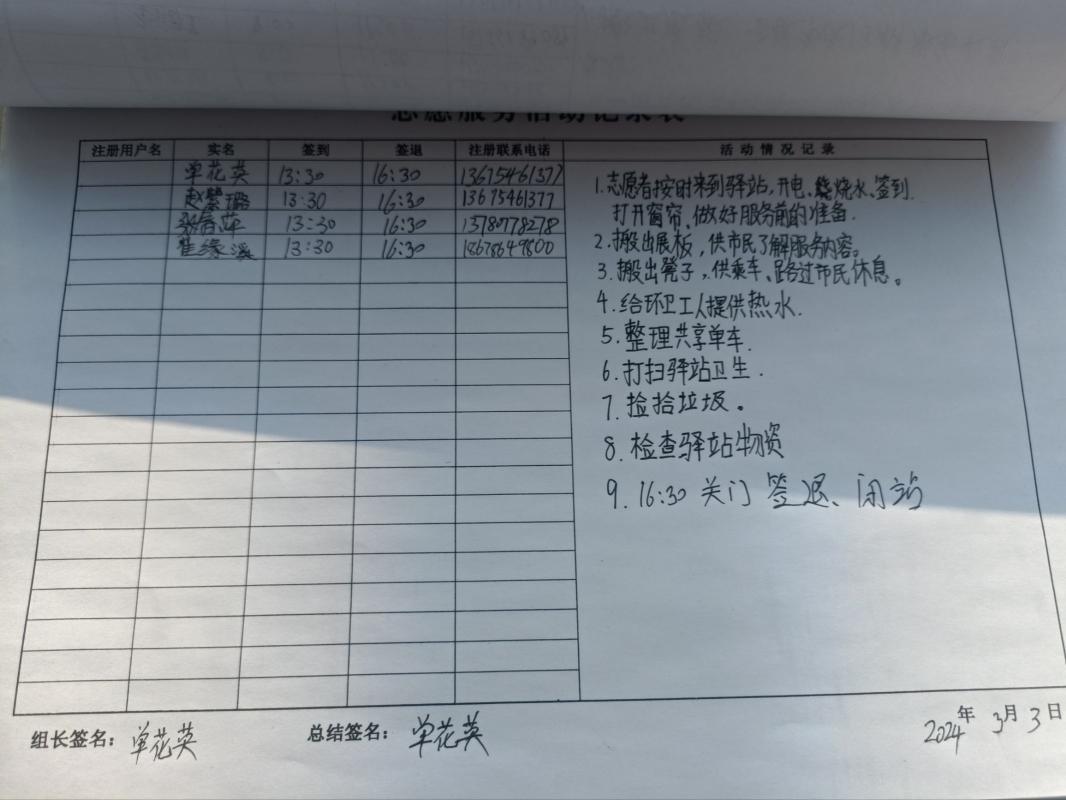 志愿服务活动记录表
注册用户名 实名 签到 签退 注册联系电话 活动情况记录
单花英 13:30 16:30 13675461377
赵 13:30 16:30 13675461377
张春萍 13:30 16:30 13780778278
崔缘溪 13:30 16:30 18678649800
1.志愿者按时来到驿站,开电、烧水、签到.
打开窗帘、做好服务前的准备.
2.搬出展板,供市民了解服务内容。
3.搬出凳子,供乘车、路过市民休息。
4.给环卫工人提供热水.
5.整理共享单车.
6.打扫驿站卫生.
7.捡拾垃圾。
8.检查驿站物资
9.16:30 关门 签退、闭站
组长签名:单花英 总结签名:单花英 2024年3月3日